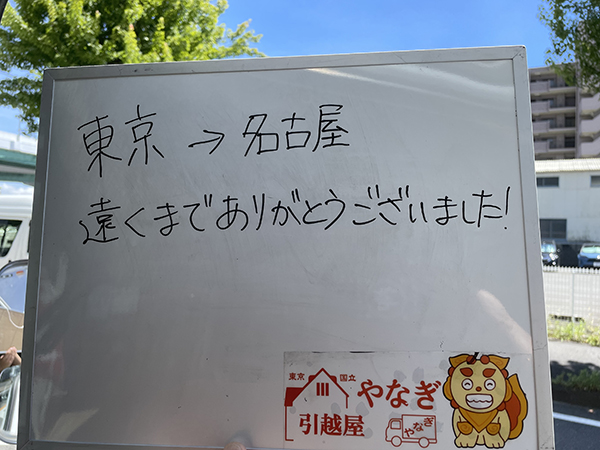 東京 → 名古屋
遠くまでありがとうございました!
東京 国立 やなぎ
引越屋 やなぎ